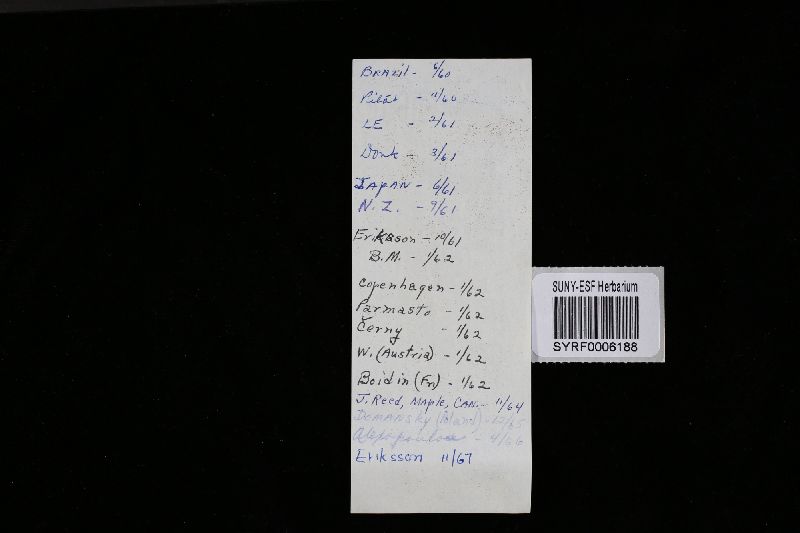 Brazil - 6/60
Pilát - 11/60
LE - 2/61
Donk - 3/61
Japan - 6/61
N.Z. - 9/61
Eriksson - 10/61
B.M. - 1/62
Copenhagen - 1/62
Parmasto - 1/62
Černy - 1/62
W. (Austria) - 1/62
Boidin (Fr) - 1/62
J. Reed, Maple, Can. - 11/64
Domansky (Poland) - 12/65
Alexopoulos - 4/66
Eriksson 11/67
SUNY-ESF Herbarium
SYRF0006188